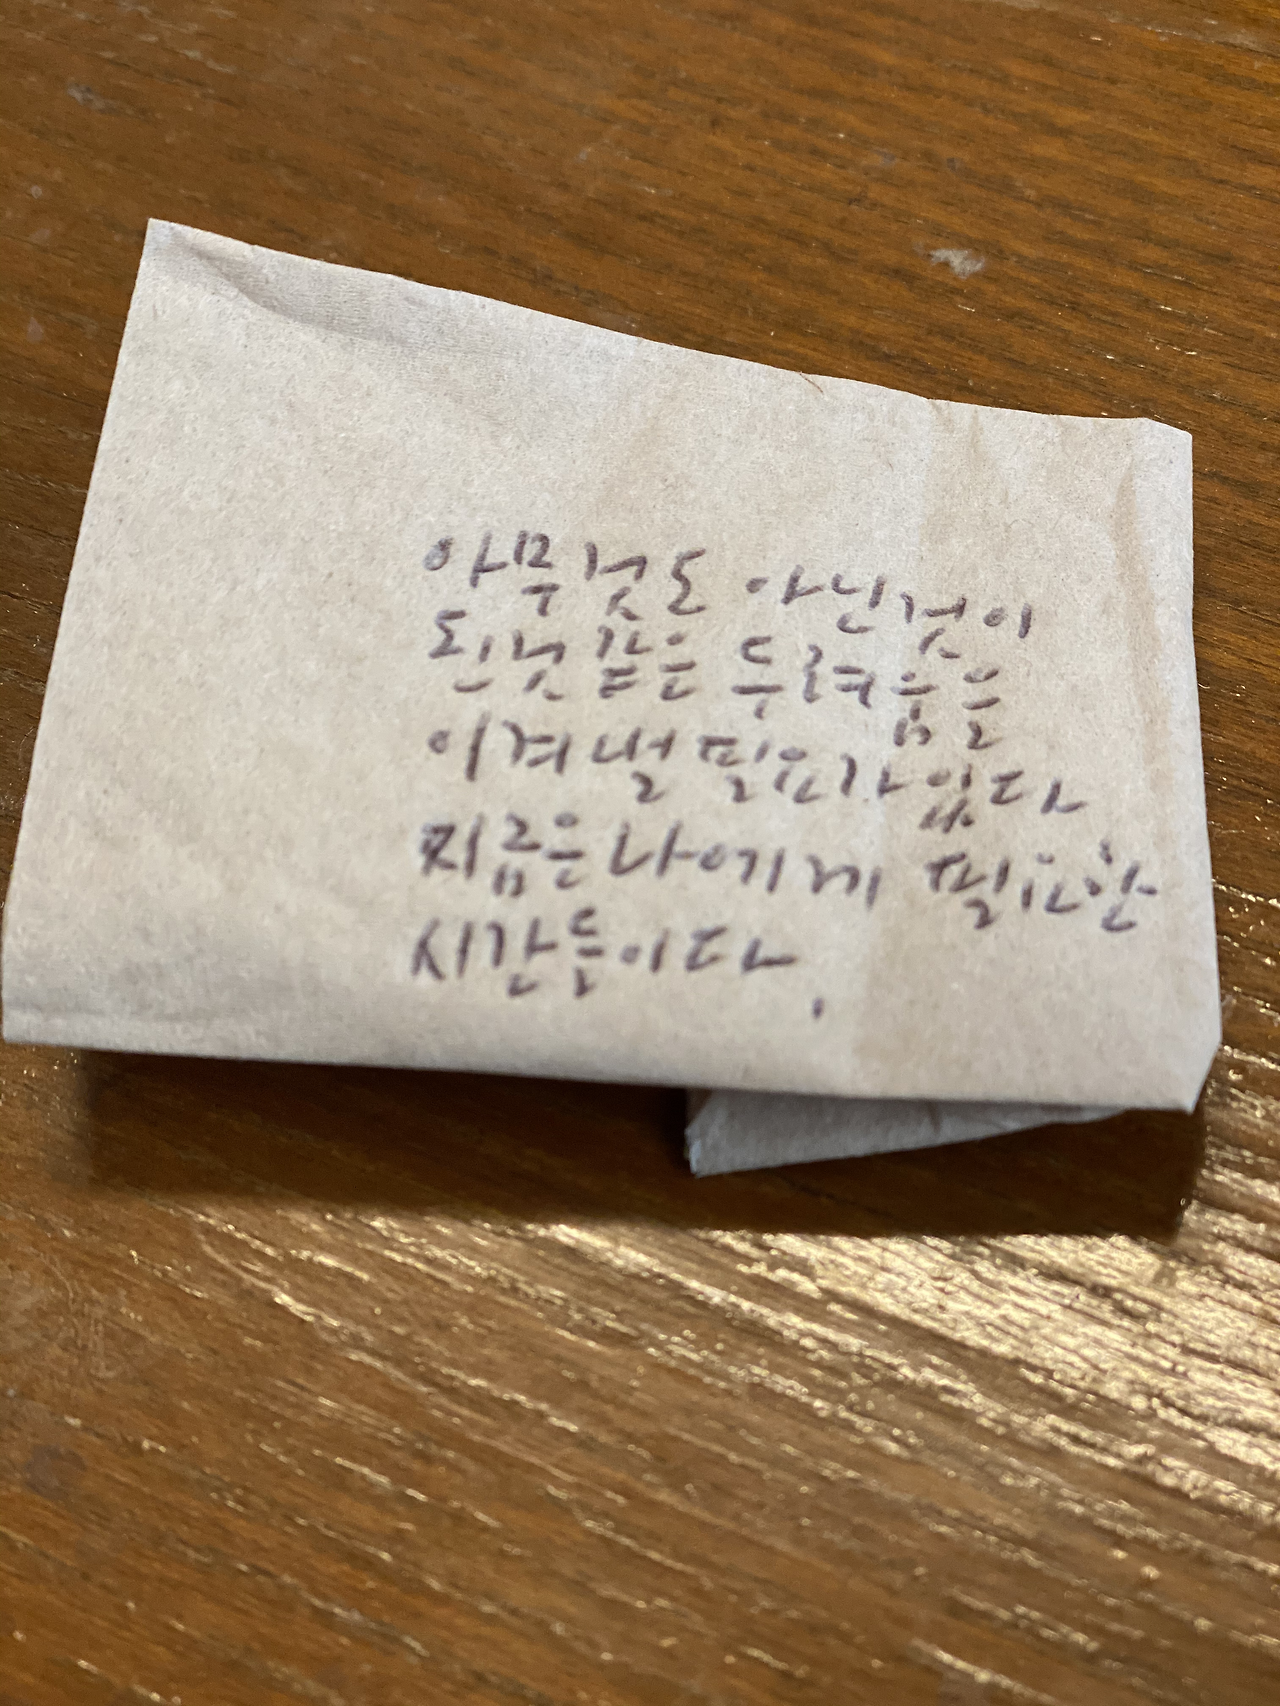 아무것도 아닌것이
된것 같은 두려움을
이겨낼 필요가 있다
지금은 나에게 필요한
시간들이다.